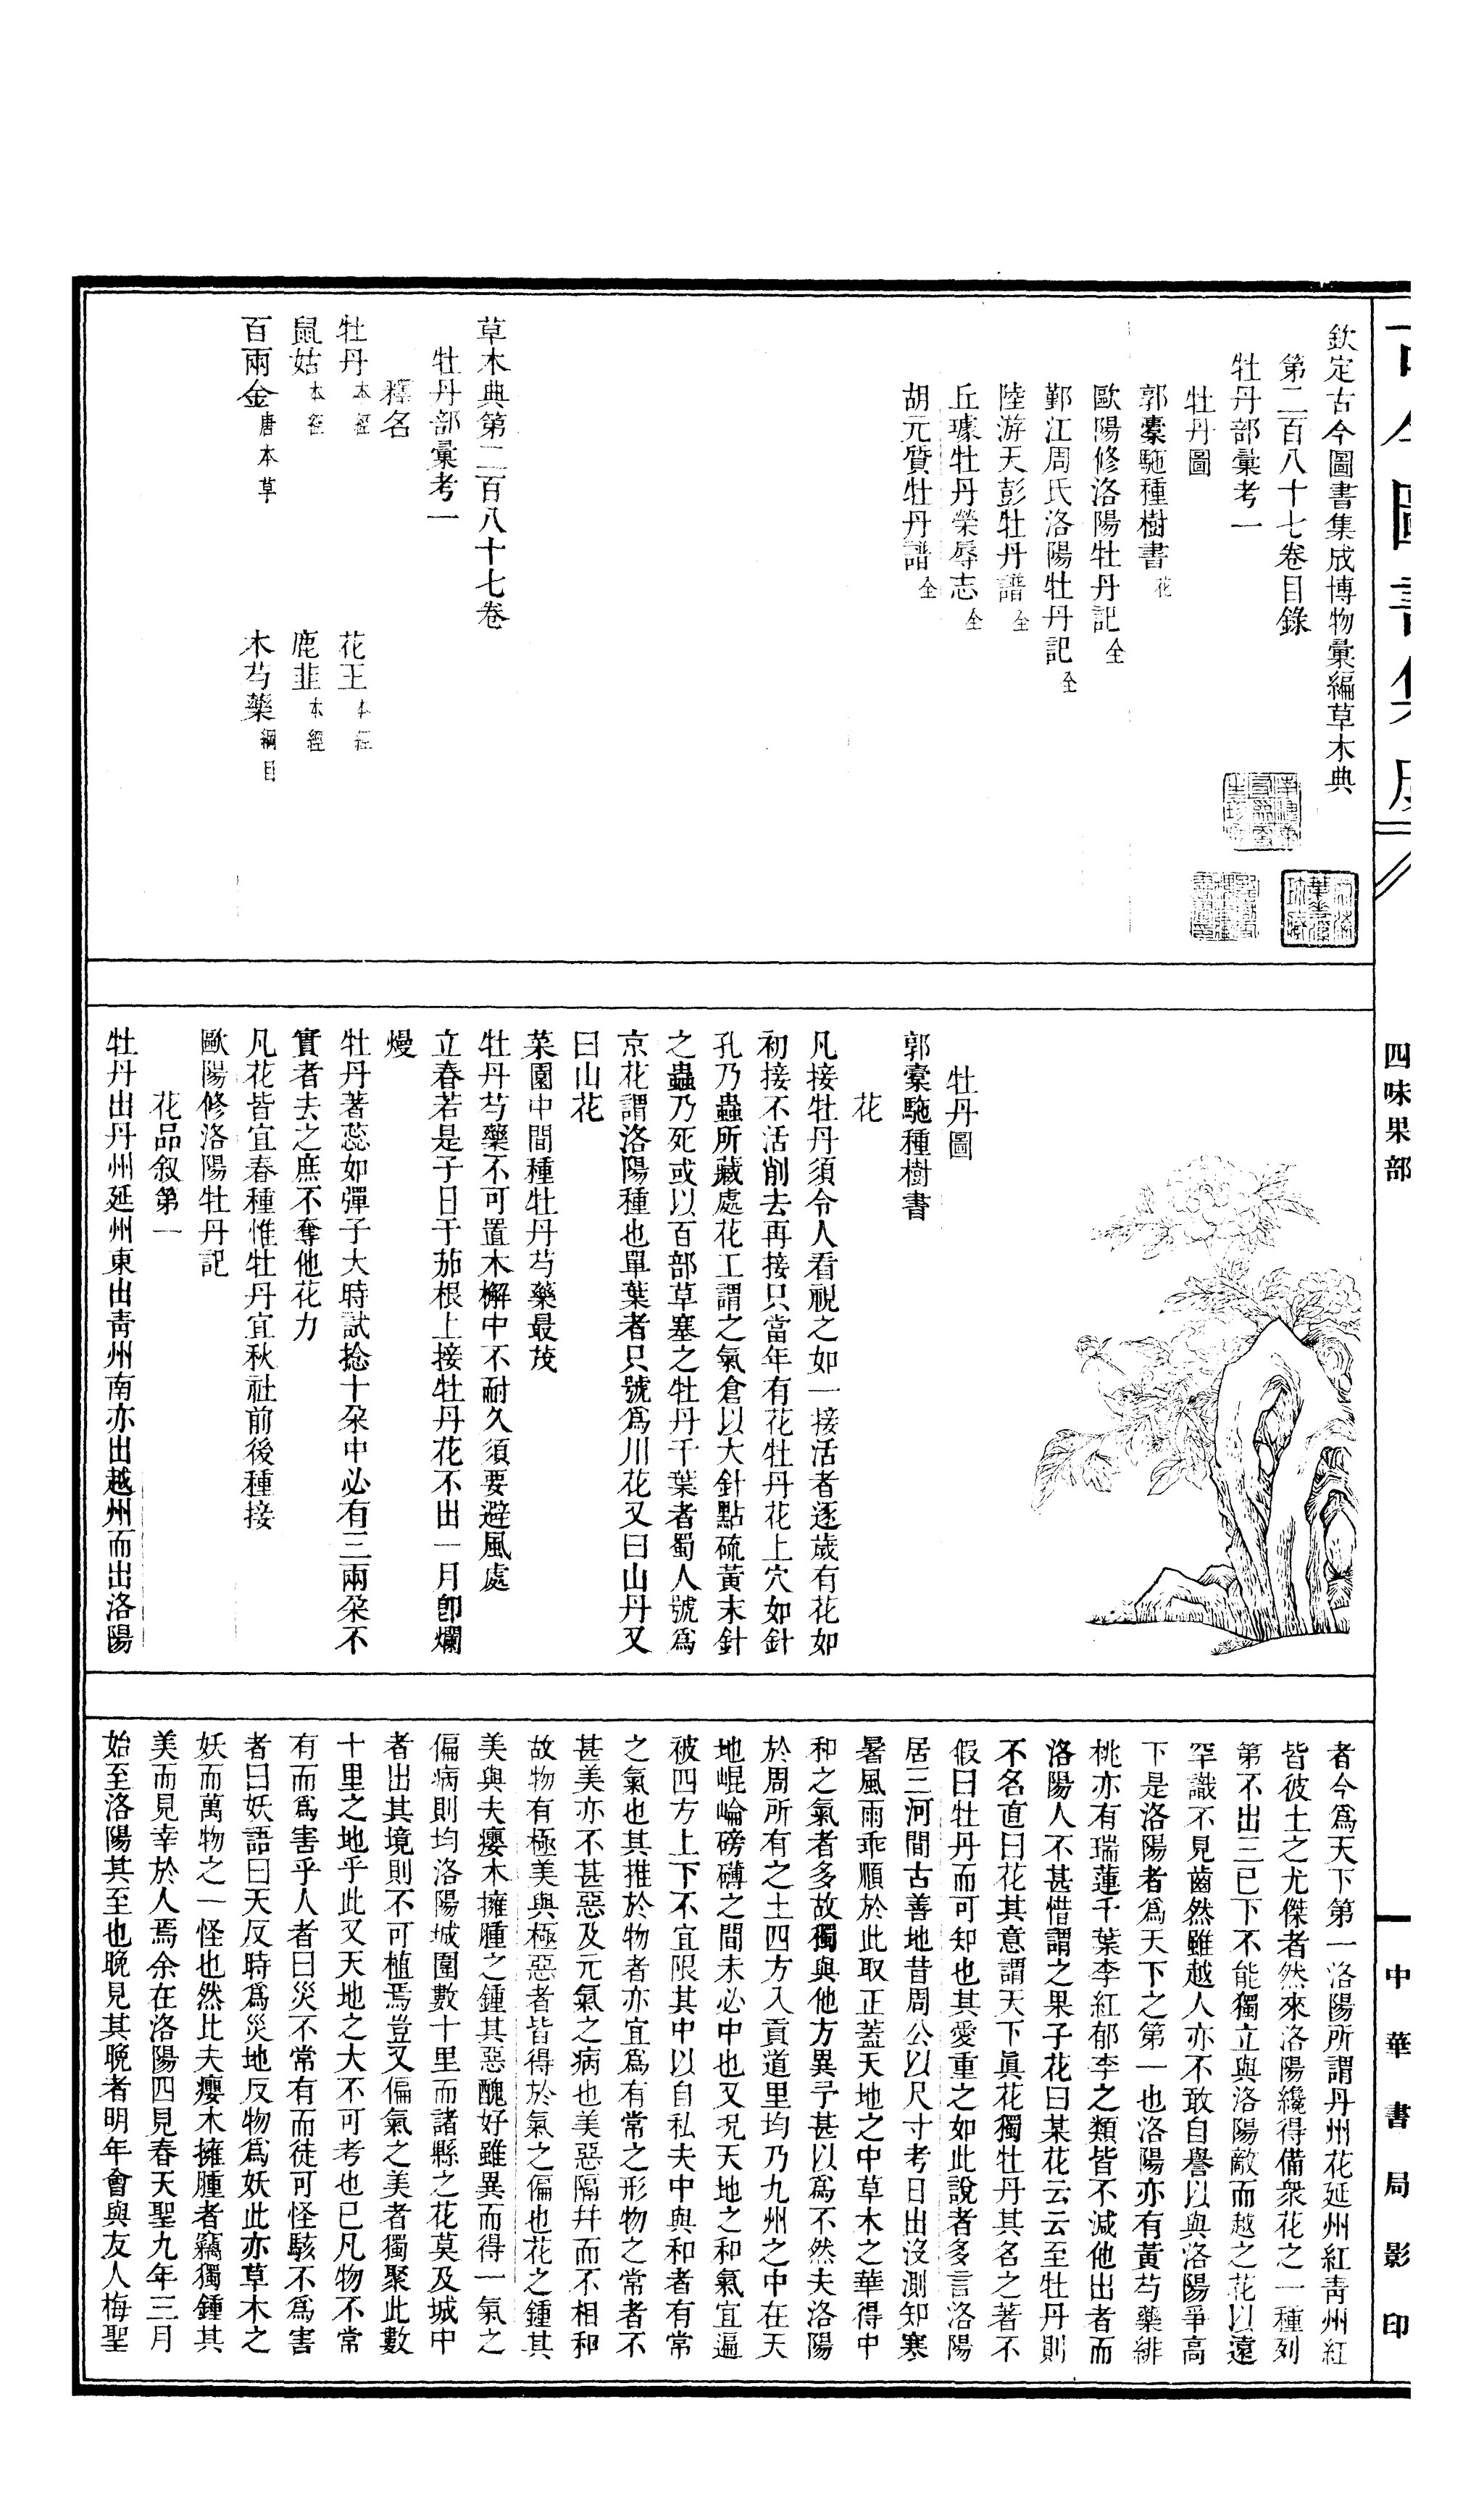 欽定古今圖書集成博物彙編草木典
第二百八十七卷目錄
牡丹部彙考一
牡丹圖
郭橐駞種樹書花
歐陽修洛陽牡丹記全
鄞江周氏洛陽牡丹記全
陸游天彭牡丹譜全
丘璩牡丹榮辱志全
胡元質牡丹譜全
草木典第二百八十七卷
牡丹部彙考一
釋名
牡丹本經 花王本經
鼠姑本經 鹿韭本經
百兩金唐本草 木芍藥綱目
牡丹圖
郭橐駞種樹書
花
凡接牡丹須令人看視之如一接活者逐歲有花如
初接不活削去再接只當年有花牡丹花上穴如針
孔乃蟲所藏處花工謂之氣倉以大針點硫黃末針
之蟲乃死或以百部草塞之牡丹千葉者蜀人號爲
京花謂洛陽種也單葉者只號爲川花又曰山丹又
曰山花
菜園中間種牡丹芍藥最茂
牡丹芍藥不可置木檞中不耐久須要避風處
立春若是子日于茄根上接牡丹花不出一月卽爛
熳
牡丹著蕊如彈子大時試捻十朶中必有三兩朶不
實者去之庶不奪他花力
凡花皆宜春種惟牡丹宜秋社前後種接
歐陽修洛陽牡丹記
花品叙第一
牡丹出丹州延州東出靑州南亦出越州而出洛陽
者今爲天下第一洛陽所謂丹州花延州紅靑州紅
皆彼土之尤傑者然來洛陽纔得備衆花之一種列
第不出三已下不能獨立與洛陽敵而越之花以遠
罕識不見齒然雖越人亦不敢自譽以與洛陽爭高
下是洛陽者爲天下之第一也洛陽亦有黃芍藥緋
桃亦有瑞蓮千葉李紅郁李之類皆不減他出者而
洛陽人不甚惜謂之果子花曰某花云云至牡丹則
不名直曰花其意謂天下眞花獨牡丹其名之著不
假曰牡丹而可知也其愛重之如此說者多言洛陽
居三河間古善地昔周公以尺寸考日出沒測知寒
暑風雨乖順於此取正蓋天地之中草木之華得中
和之氣者多故獨與他方異予甚以爲不然夫洛陽
於周所有之土四方入貢道里均乃九州之中在天
地崐崘磅礴之間未必中也又況天地之和氣宜遍
被四方上下不宜限其中以自私夫中與和者有常
之氣也其推於物者亦宜爲有常之形物之常者不
甚美亦不甚惡及元氣之病也美惡隔幷而不相和
故物有極美與極惡者皆得於氣之偏也花之鍾其
美與夫癭木擁腫之鍾其惡醜好雖異而得一氣之
偏病則均洛陽城圍數十里而諸縣之花莫及城中
者出其境則不可植焉豈又偏氣之美者獨聚此數
十里之地乎此又天地之大不可考也已凡物不常
有而爲害乎人者曰災不常有而徒可怪駭不爲害
者曰妖語曰天反時爲災地反物爲妖此亦草木之
妖而萬物之一怪也然比夫癭木擁腫者竊獨鍾其
美而見幸於人焉余在洛陽四見春天聖九年三月
始至洛陽其至也晚見其晚者明年會與友人梅聖
四味果部
中華書局影印